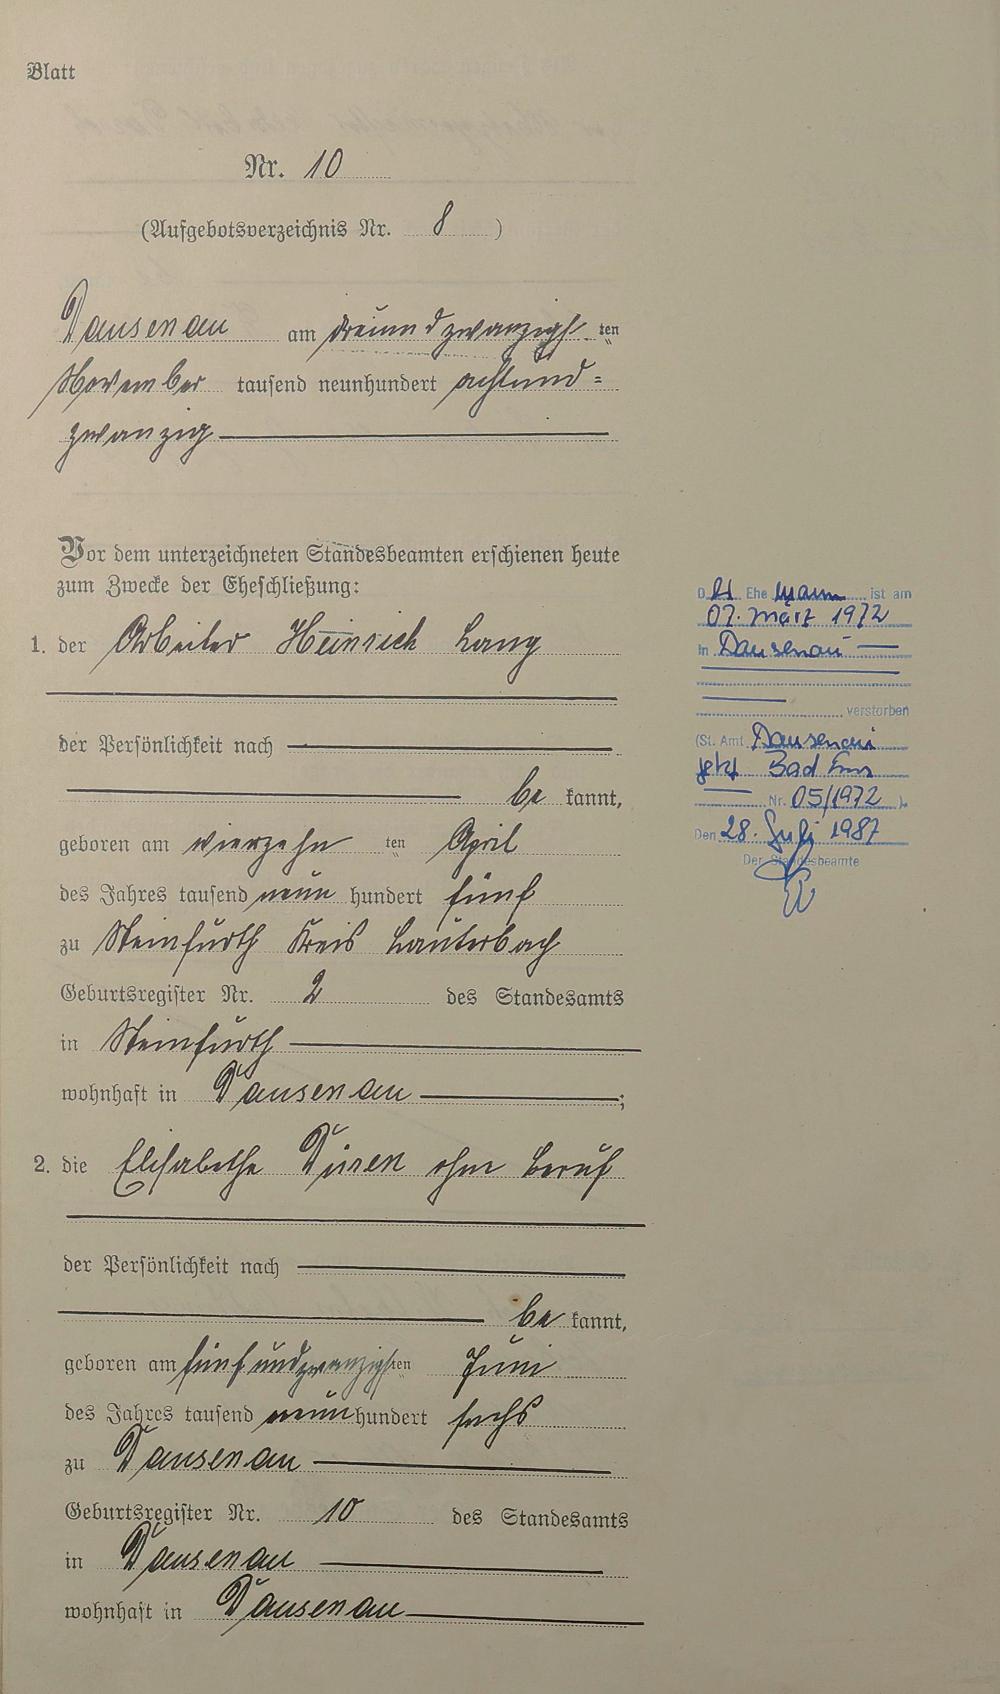 Blatt
Nr. 10
(Aufgebotsverzeichnis Nr. 8)
Dausenau am dreiundzwanzigsten
November tausend neunhundert achtund=
zwanzig
Vor dem unterzeichneten Standesbeamten erschienen heute
zum Zwecke der Eheschließung:
1. der Arbeiter Heinrich Lang
der Persönlichkeit nach
be kannt,
geboren am vierzehn ten April
des Jahres tausend neun hundert fünf
zu Steinfurth Kreis Lauterbach
Geburtsregister Nr. 2 des Standesamts
in Steinfurth
wohnhaft in Dausenau ;
2. die Elisabethe Düren ohne Beruf
der Persönlichkeit nach
be kannt,
geboren am fünfundzwanzigsten Juni
des Jahres tausend neun hundert sechs
zu Dausenau
Geburtsregister Nr. 10 des Standesamts
in Dausenau
wohnhaft in Dausenau
D. Ehe mann ist am
07. März 1972
in Dausenau
verstorben
(St. Amt Dausenau
jetzt Bad Ems
Nr. 05/1972 ).
Den 28. Juli 1987
Der Standesbeamte